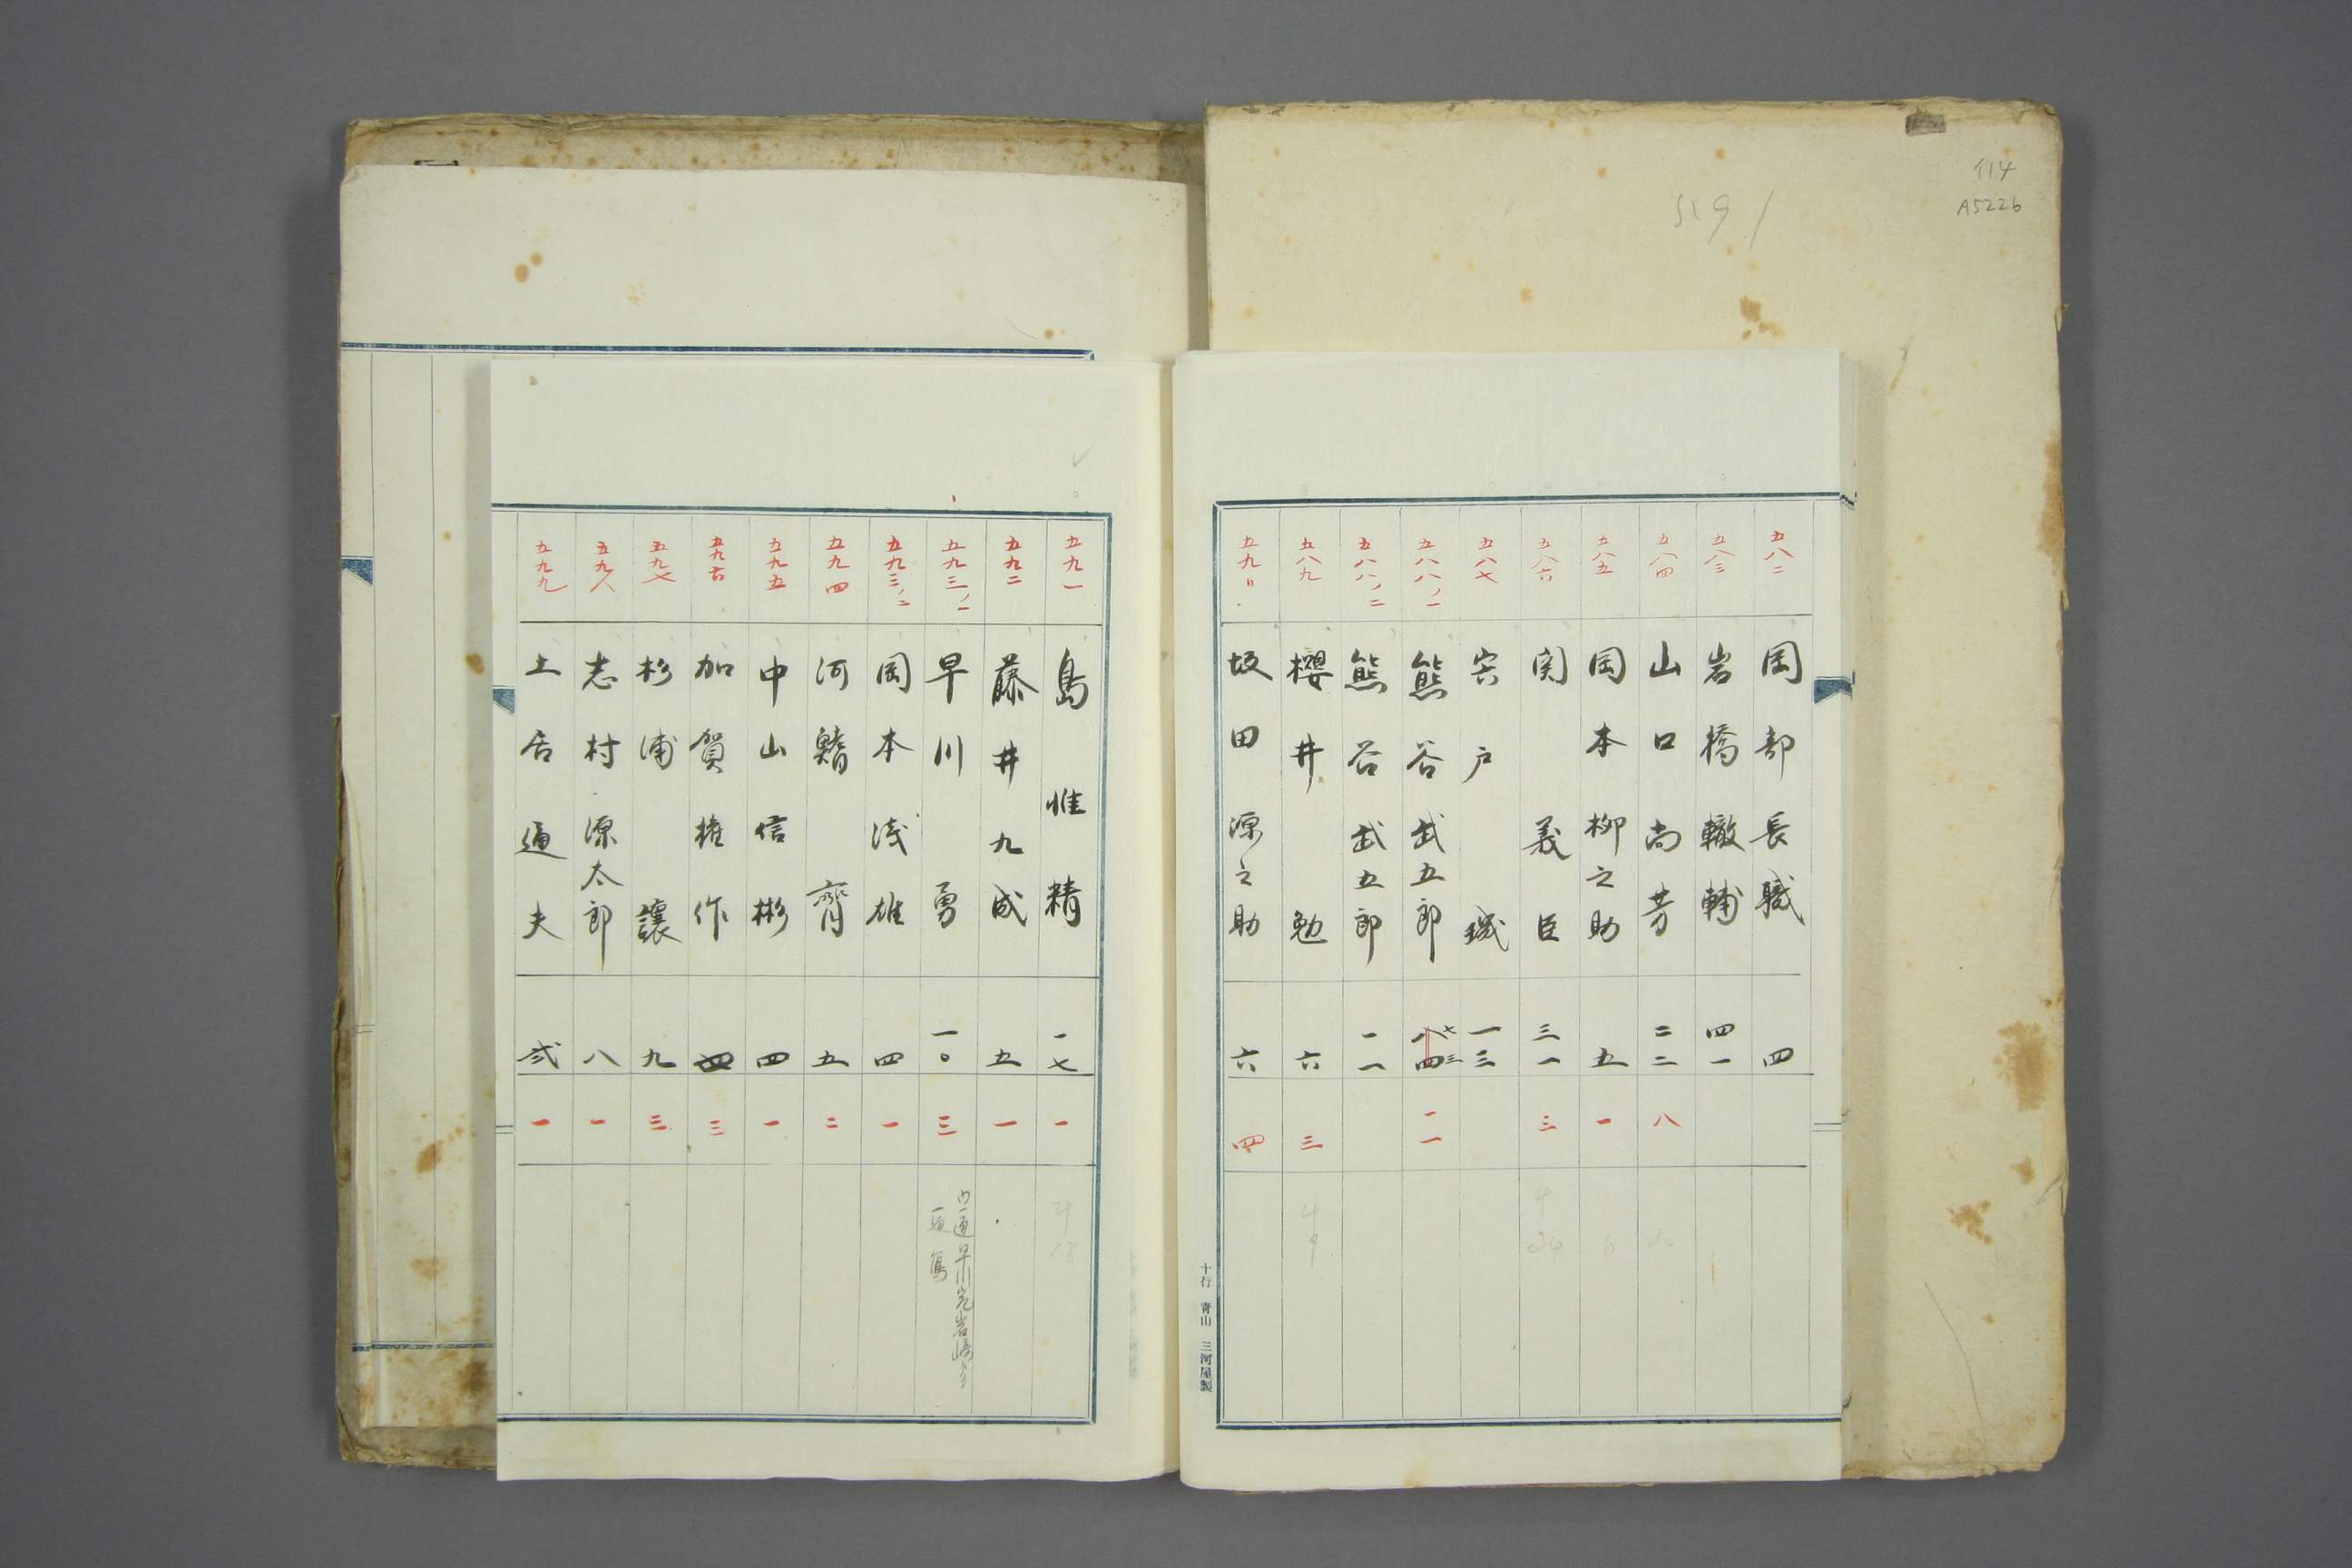 イ14
A5226
五八二 岡部長職 四
五八三 岩橋轍輔 四一
五八四 山口尚芳 二二 八
五八五 岡本柳之助 五 一
五八六 関義臣 三一 三
五八七 宍戸璣 一三
五八八ノ一 熊谷武五郎 八四 七三 二一
五八八ノ二 熊谷武五郎 一一
五八九 櫻井勉 六 三
五九〇 坂田源之助 六 四
十行 青山 三河屋製
五九一 島惟精 一七 一
五九二 藤井九成 五 一
五九三ノ一 早川勇 一〇 三
五九三ノ二 岡本浅雄 四 一
五九四 河鰭齊 五 二
五九五 中山信彬 四 一
五九六 加賀権作 四 三
五九七 杉浦譲 九 三
五九八 志村源太郎 八 一
五九九 土居通夫 弐 一